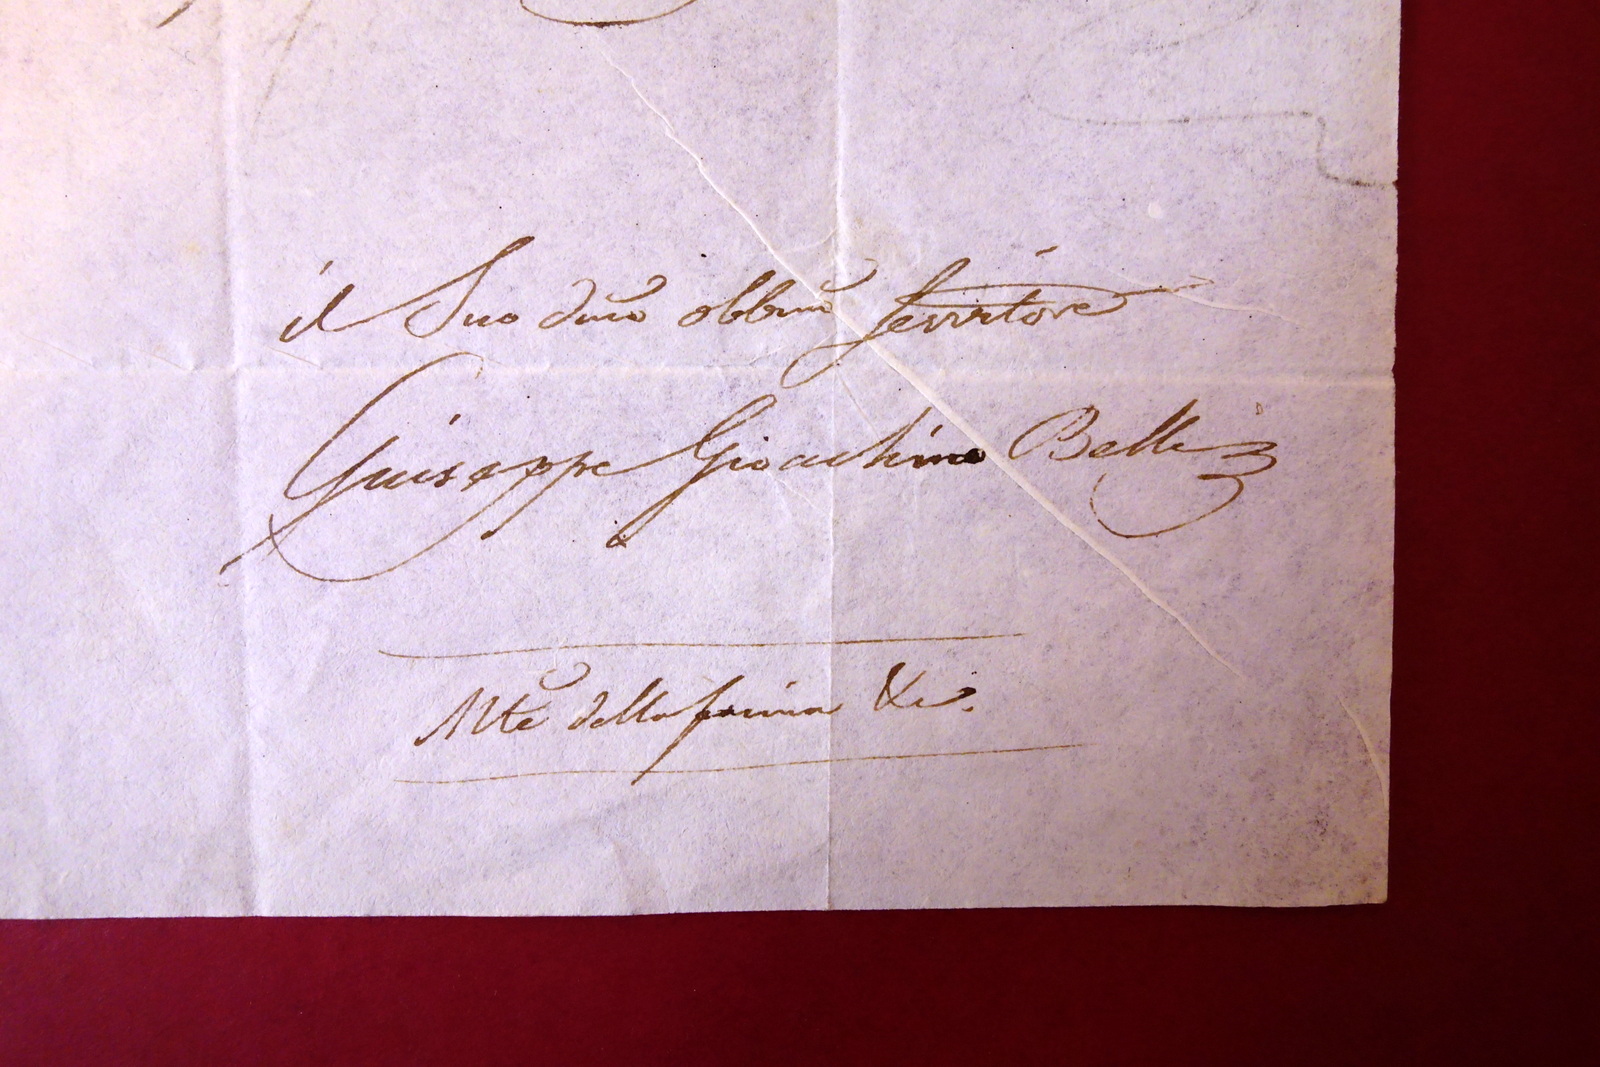 il Suo dmo obbmo servitore
Giuseppe Gioachino Belli
della prima &c.